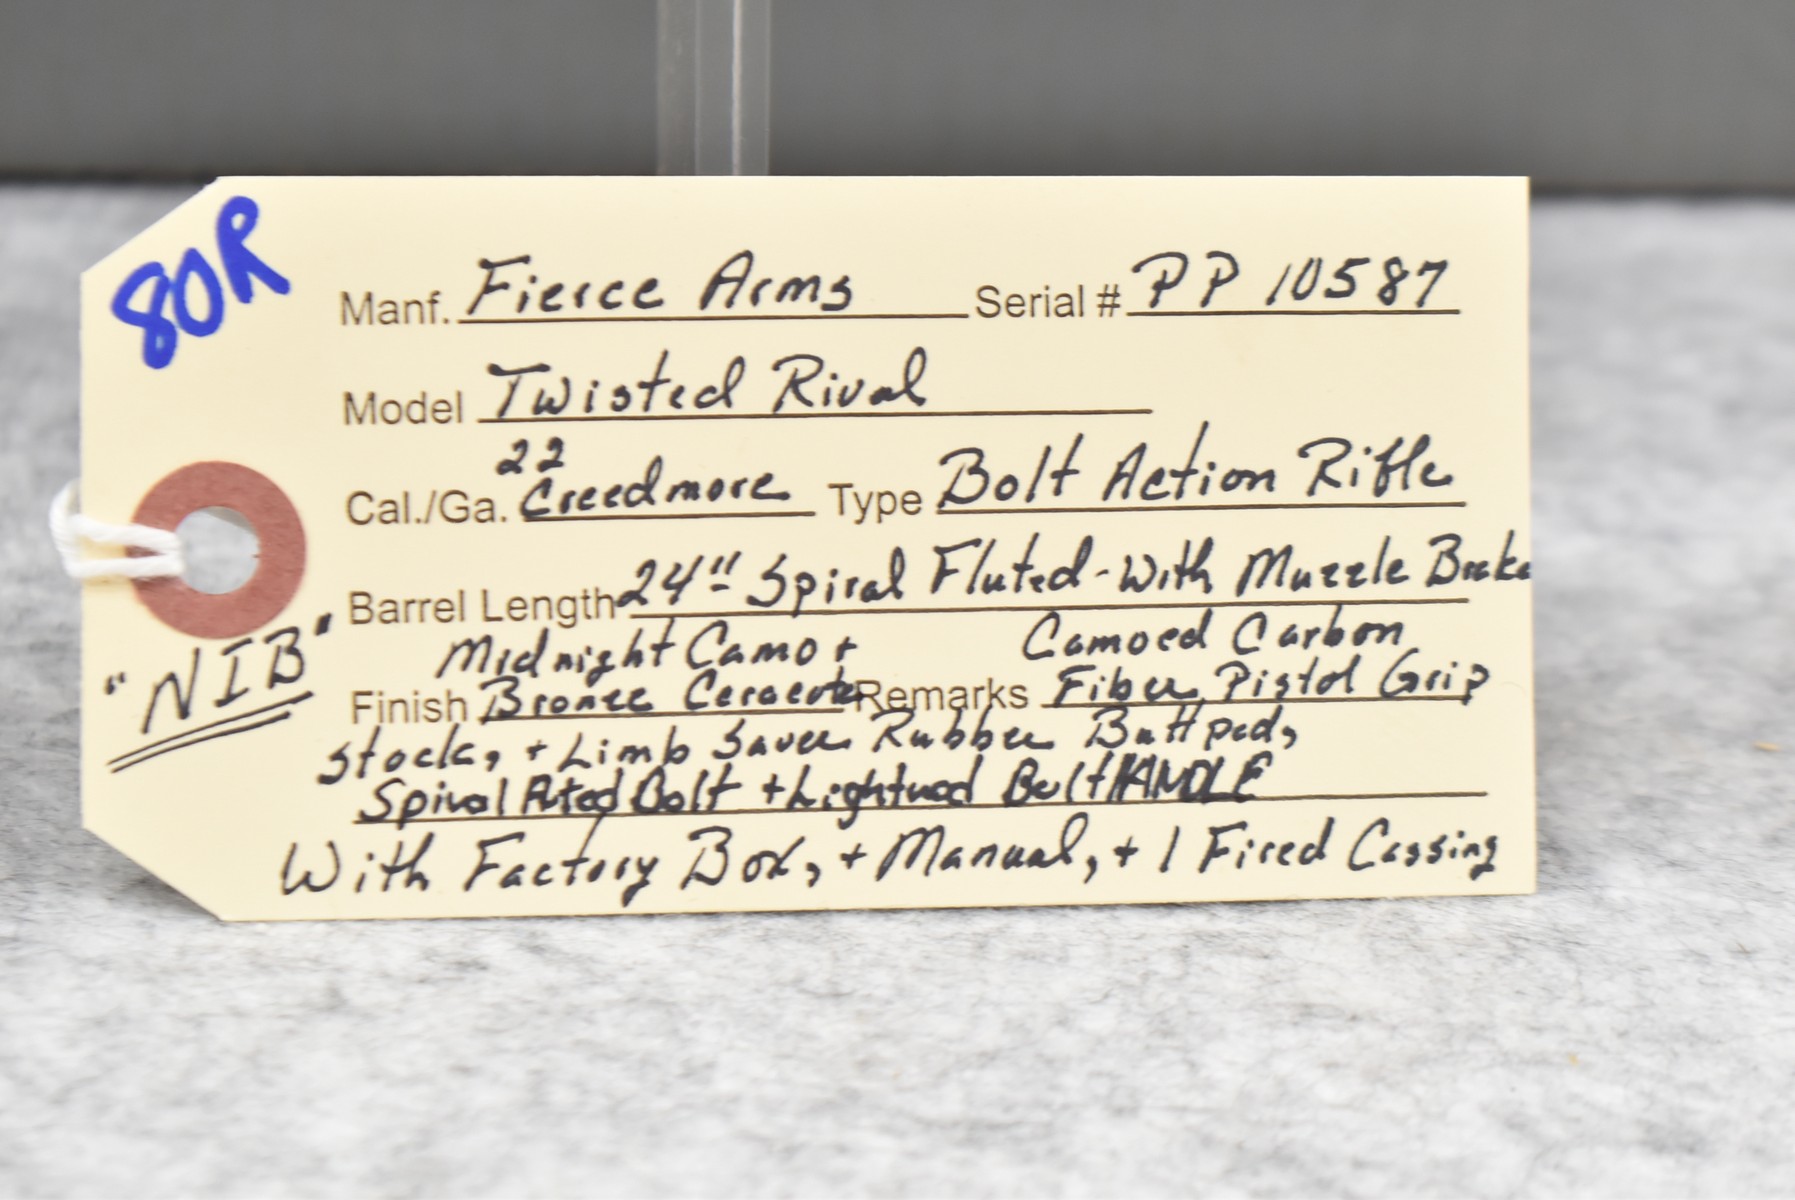 80R
Manf. Fierce Arms Serial # PP 10587
Model Twisted Rival
22
Cal./Ga. Creedmore Type Bolt Action Rifle
Barrel Length 24" Spiral Fluted - With Muzzle Brake
"NIB"
Midnight Camo + Camoed Carbon
Finish Bronze Remarks Fiber Pistol Grip
Stock, + Limb Saver Rubber Buttpad,
Spiral Bolt + Bolt HANDLE
With Factory Box, + Manual, + 1 Fired Cassing